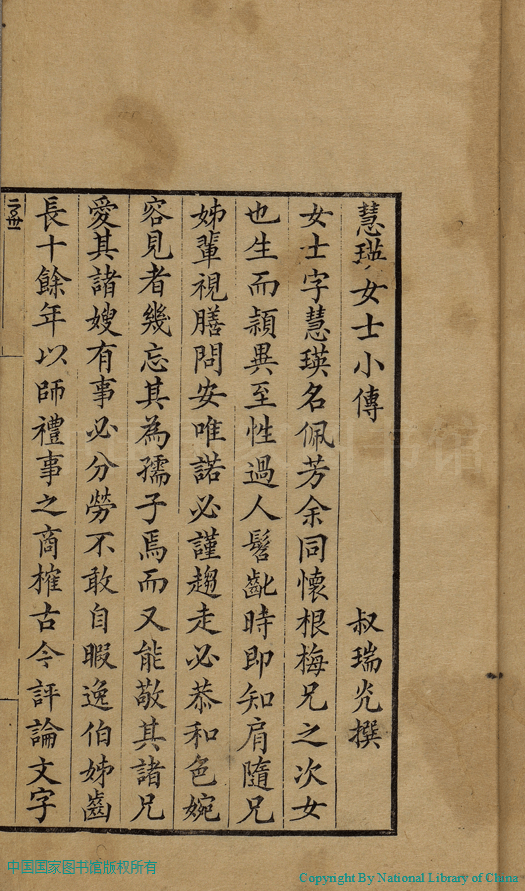 慧瑛女士小傳
叔瑞光撰
女士字慧瑛名佩芳余同懷根梅兄之次女
也生而穎異至性過人髫齓時即知肩隨兄
姊輩視膳問安唯諾必謹趨走必恭和色婉
容見者幾忘其為孺子焉而又能敬其諸兄
愛其諸嫂有事必分勞不敢自暇逸伯姊齒
長十餘年以師禮事之商榷古今評論文字
中国国家图书馆版权所有
Copyright By National Library of China